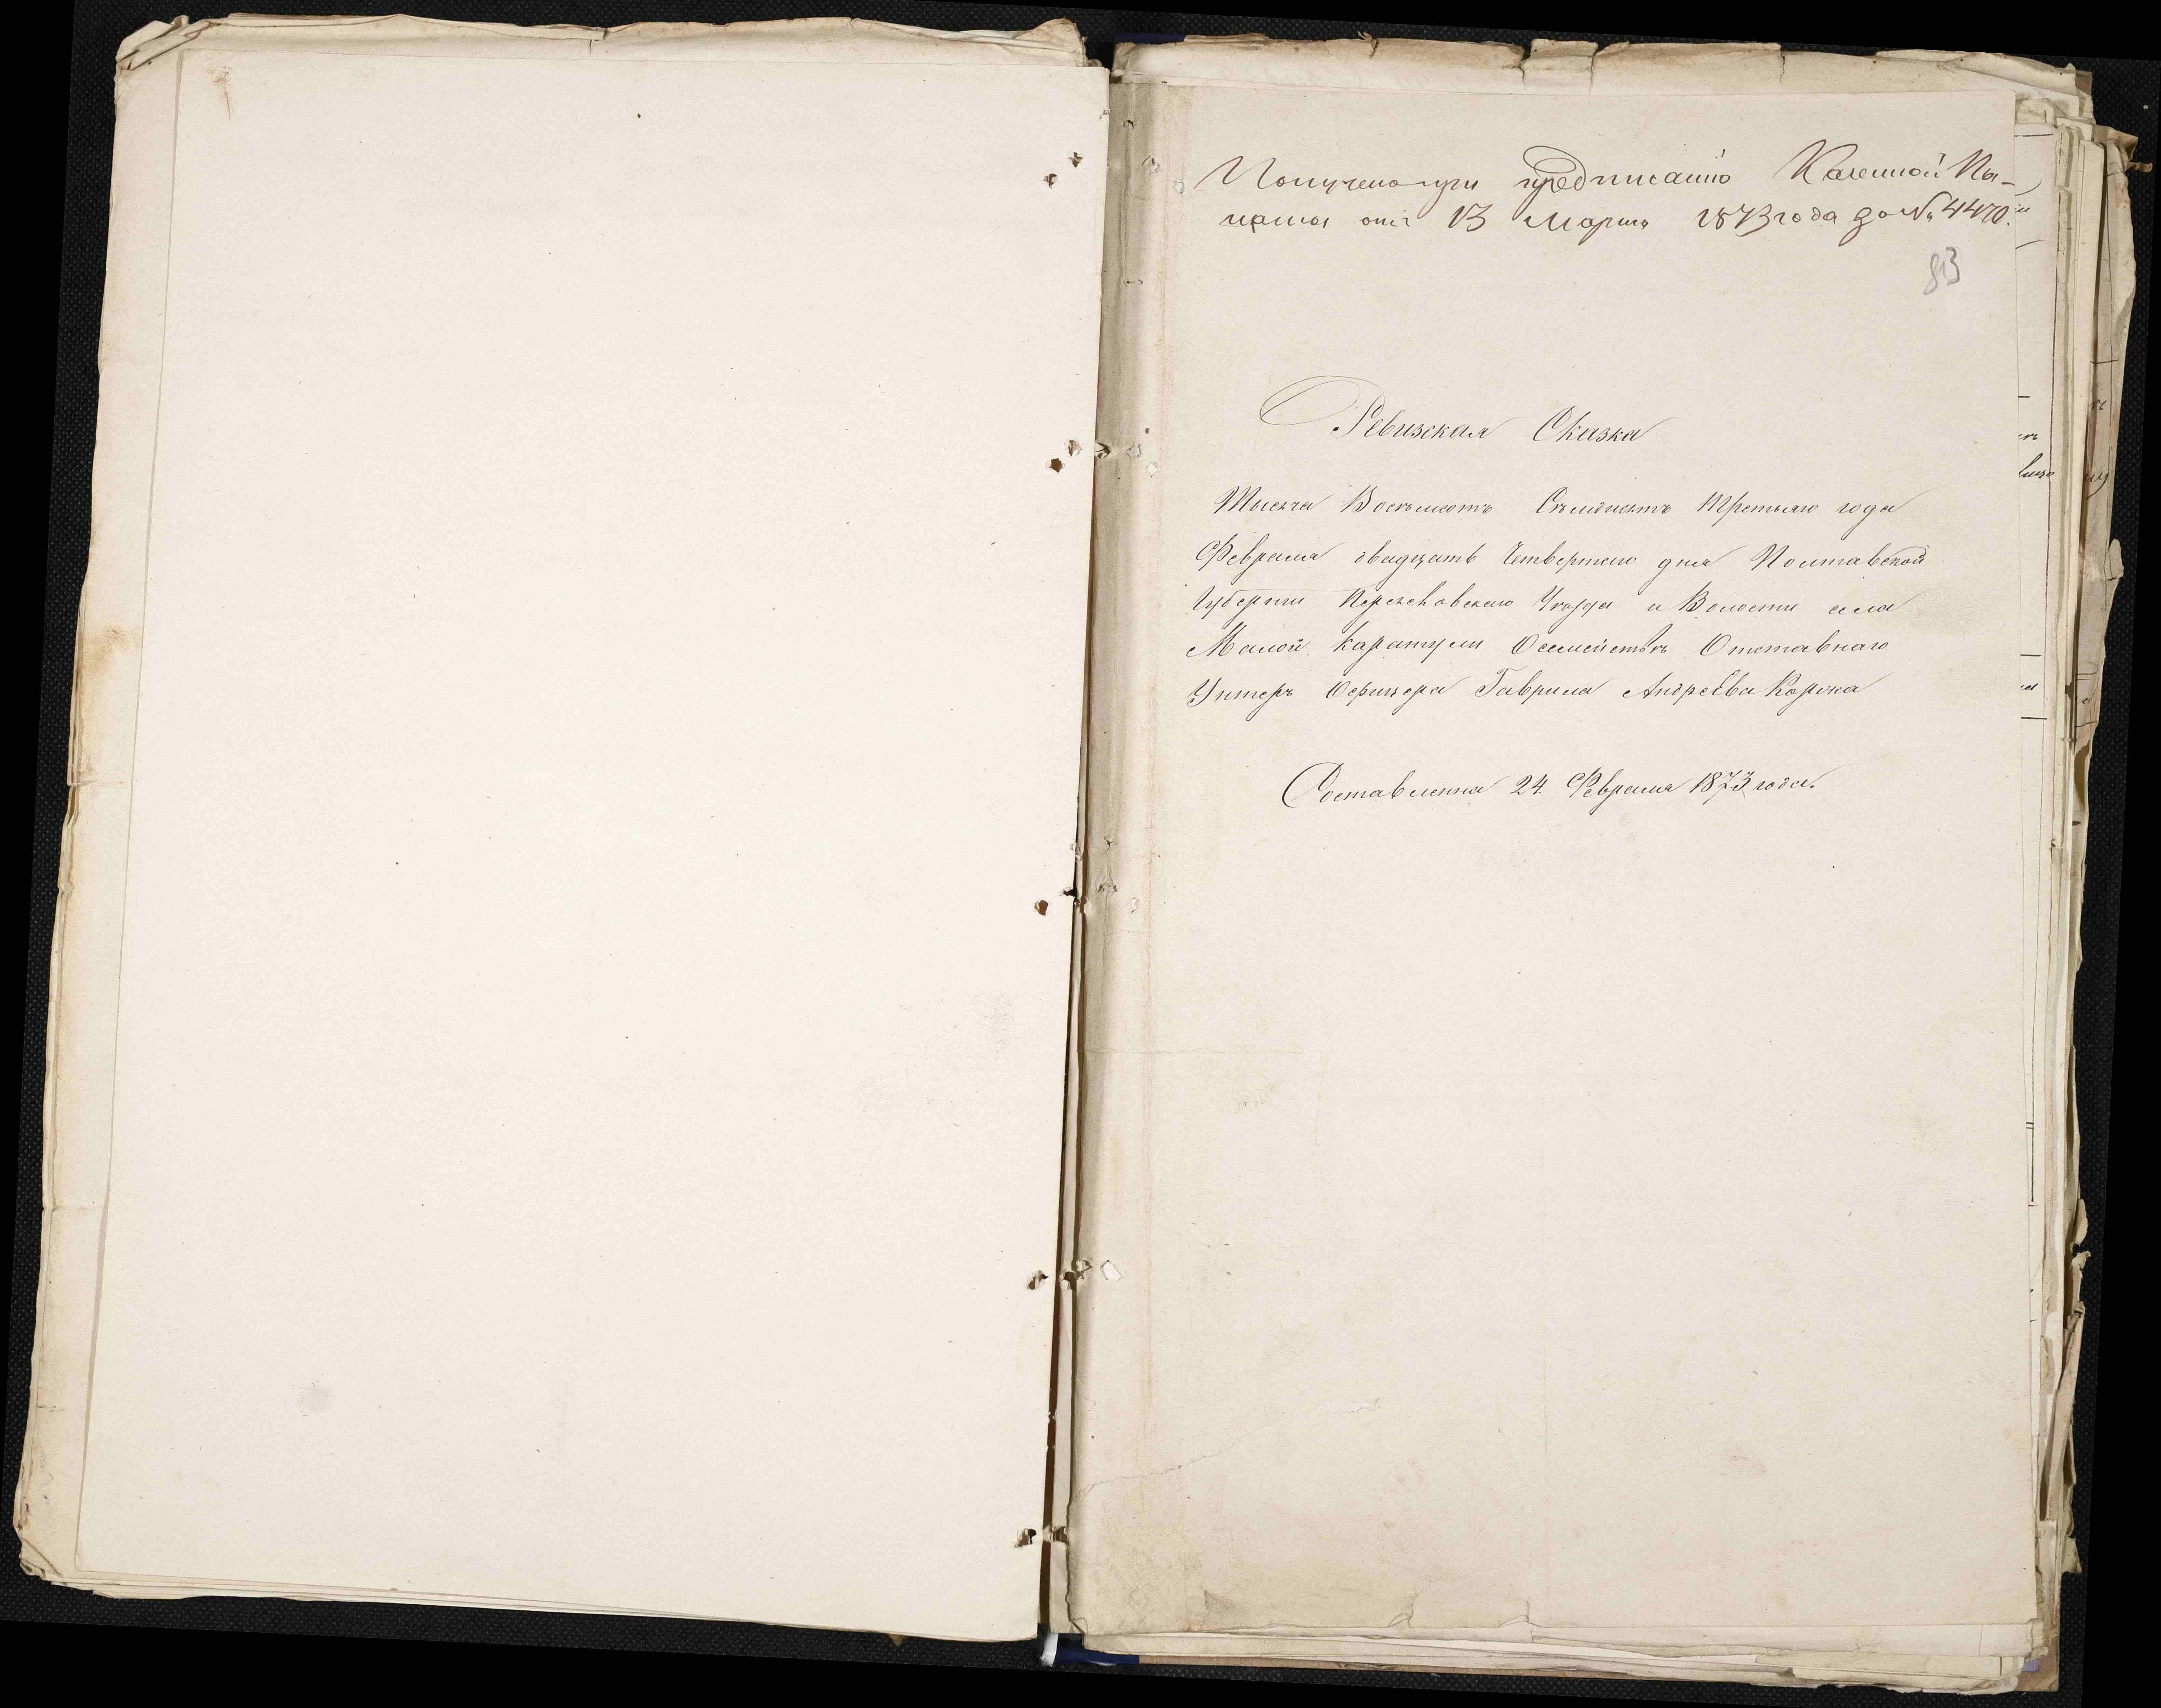 Получено при предписаніи Казенной Па-
латы отъ 13 Марта 1873 года за № 4470.
83
Ревизская Сказка
Тысяча Восемьсотъ Семьдесятъ Третьяго года
Февраля двадцать Четвертаго дня Полтавской
Губерніи Переяславскаго Уѣзда и Волости села
Малой Каратули О семействѣ Отставнаго
Унтеръ Офицера Гаврила Андреева
Составленна 24 Февраля 1873 года.